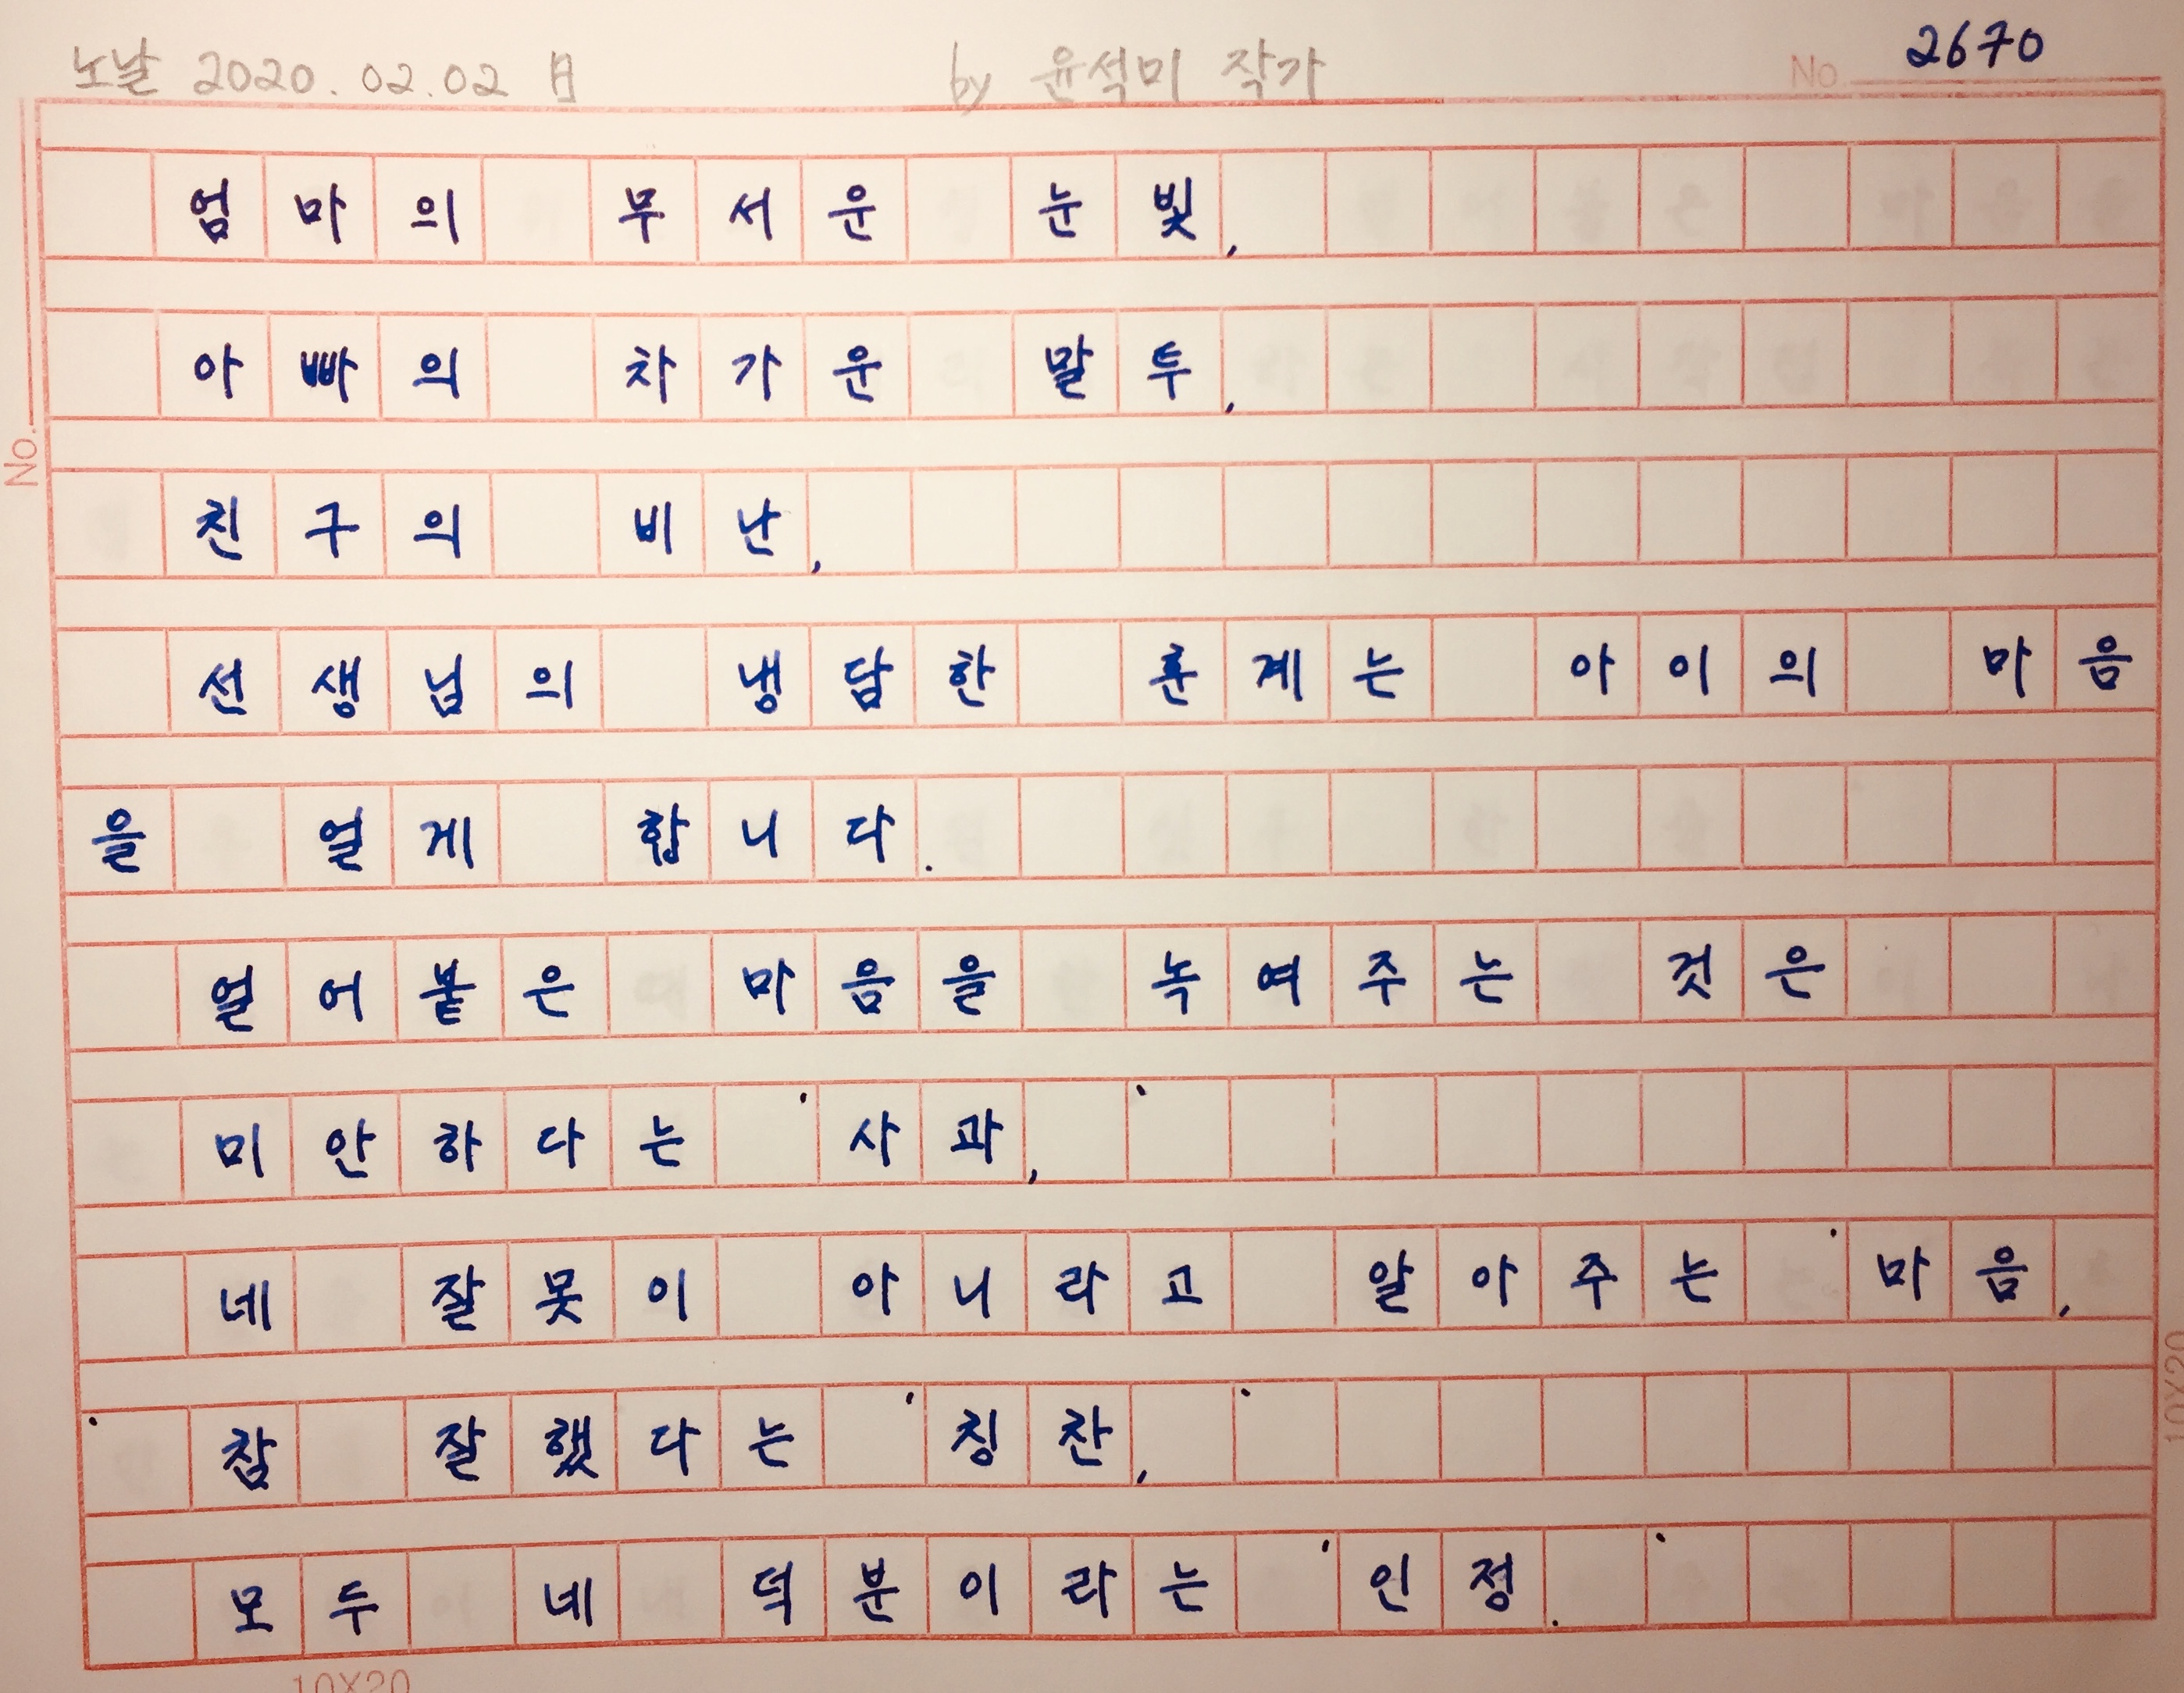 노날 2020.02.02 日 by 윤석미 작가 No. 2670
엄마의 무서운 눈빛,
아빠의 차가운 말투,
No.
친구의 비난,
선생님의 냉담한 훈계는 아이의 마음
을 얼게 합니다.
얼어붙은 마음을 녹여주는 것은
미안하다는 '사과,'
네 잘못이 아니라고 알아주는 '마음,
' 참 잘했다는 '칭찬,'
모두 네 덕분이라는 '인정.'
10X20
10X20